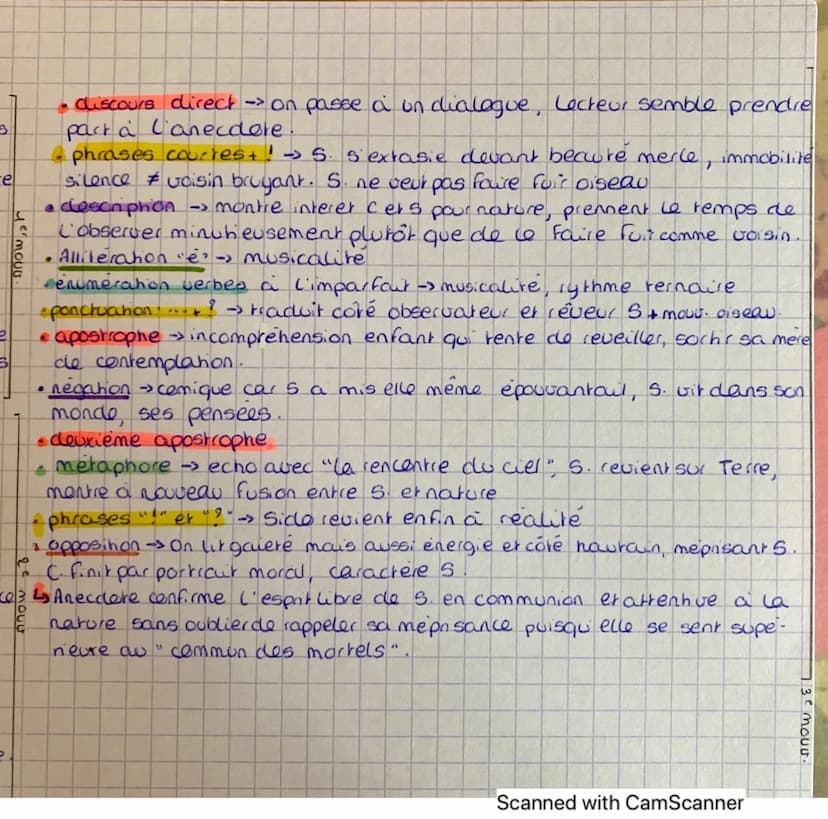 • discours direct -> on passe à un dialogue, Lecteur semble prendre
part à l'anecdote.
• phrases courtes + ! -> S. s'extasie devant beauté merle, immobilité
silence ≠ voisin bruyant. S. ne veut pas faire fuir oiseau
• description -> montre interet C et S pour nature, prennent le temps de
L'observer minutieusement plutôt que de le faire fuir comme voisin.
• Allitération "é" -> musicalité
• énumération verbes à l'imparfait -> musicalité, rythme ternaire
• ponctuation ... + ? -> traduit côté observateur et rêveur S + mouv. oiseau
• apostrophe -> incompréhension enfant qui tente de reveiller, sortir sa mère
de contemplation.
• négation -> comique car S a mis elle même épouvantail, S. vit dans son
monde, ses pensées.
• deuxième apostrophe
• métaphore -> echo avec "la rencontre du ciel", S. revient sur Terre,
montre à nouveau fusion entre S. et nature
• phrases "!" et "?" -> Sido revient enfin à réalité
• opposition -> On lit gaieté mais aussi énergie et côté hautain, méprisant S.
C. finit par portrait moral, caractère S.
↳ Anecdote confirme l'esprit libre de S. en communion et attentive à la
nature sans oublier de rappeler sa méprisance puisqu'elle se sent supé-
rieure au "commun des mortels".
3e mouv.
Scanned with CamScanner